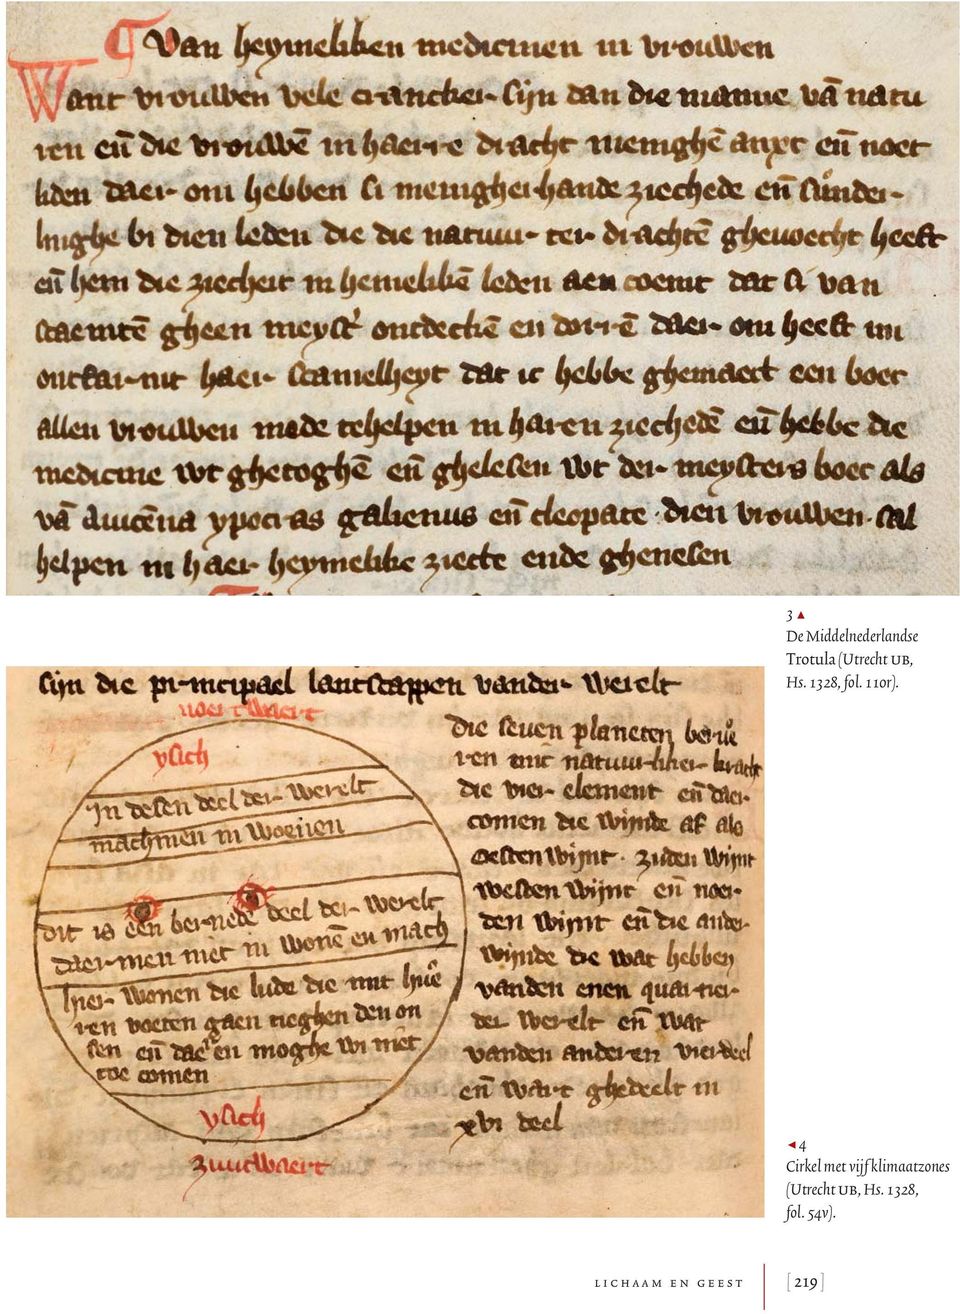 Van heymeliken medicinen in vrouwen
Want vrouwen vele crancker sijn dan die manne vā natu
ren eñ die vrouwē in haerre dracht menighē anxt eñ noet
liden daer om hebben si menigherhande ziechede eñ sunder-
linghe bi dien leden die die natuur ter drachtē ghevoecht heeft
eñ hem die ziecheit in hemelikē leden aen coemt dat si van
scaemtē gheen meyst' ontdeckē en dorrē daer om heeft mi
ontfarmt haer scamelheyt dat ic hebbe ghemaect een boec
allen vrouwen mede tehelpen in haren ziechedē eñ hebbe die
medicine wt ghetoghē eñ ghelesen wt der meysters boec als
vā Auicēna ypocras galienus eñ cleopate dien vrouwen sal
helpen in haer heymelike ziecte ende ghenesen
3▲
De Middelnederlandse
Trotula (Utrecht UB,
Hs. 1328, fol. 110r).
sijn die principael lantscappen vander werelt
noertwaert
ysich
In desen deel der werelt
machmen in woenen
dit is een bernede deel der werelt
daermen niet in wonē en mach
hier wonen die lude die mit hue
ren voeten gaen tieghen den on
sen eñ daer en moghē wi niet
toe comen
ysich
zuutwaert
die seuen planeten berue
ren mit natuurliker kracht
die vier element eñ daer
comen die wijnde af als
oesten wijnt zuden wijnt
westen wijnt eñ noer-
den wijnt eñ die ander
wijnde die wat hebben
vanden enen quartier
der werelt eñ wat
vanden anderen vierdeel
eñ wart ghedeelt in
xvi deel
◄4
Cirkel met vijf klimaatzones
(Utrecht UB, Hs. 1328,
fol. 54v).
LICHAAM EN GEEST [219]